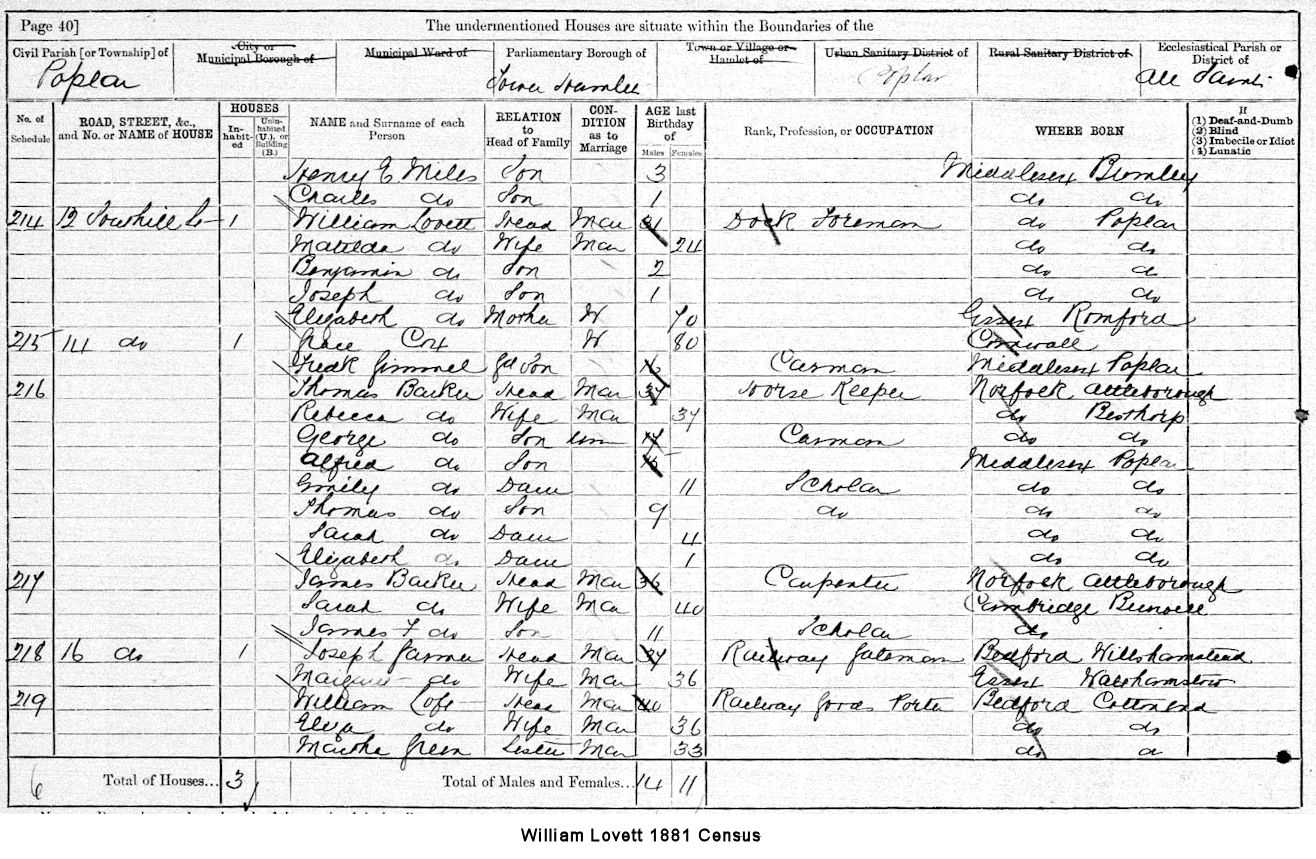 Page 40] The undermentioned Houses are situate within the Boundaries of the
Civil Parish [or Township] of City or Municipal Borough of Municipal Ward of Parliamentary Borough of Town or Village or Hamlet of Urban Sanitary District of Rural Sanitary District of Ecclesiastical Parish or District of
Poplar Tower Hamlets Poplar All Saints
No. of Schedule ROAD, STREET, &c., and No. or NAME of HOUSE HOUSES In-habit-ed Unin-habited (U.), or Building (B.) NAME and Surname of each Person RELATION to Head of Family CON-DITION as to Marriage AGE last Birthday of Males Females Rank, Profession, or OCCUPATION WHERE BORN If (1) Deaf-and-Dumb (2) Blind (3) Imbecile or Idiot (4) Lunatic
Henry E Miles Son 3 Middlesex Bromley
Charles do Son 1 do do
214 12 1 William Lovett Head Mar 31 Dock Foreman do Poplar
Matilda do Wife Mar 24 do do
Benjamin do Son 2 do do
Joseph do Son 1 do do
Elizabeth do Mother W 70 Essex Romford
215 14 do 1 Grace Cox W 80 Cornwall
Fredk Gimmel Gd Son Carman Middlesex Poplar
216 Thomas Barker Head Mar 37 Horse Keeper Norfolk Attleborough
Rebecca do Wife Mar 37 do Besthorp
George do Son Unm Carman do do
Alfred do Son 15 Middlesex Poplar
Emily do Daur 11 Scholar do do
Thomas do Son 9 do do do
Sarah do Daur 4 do do
Elizabeth do Daur 1 do do
217 James Barker Head Mar 36 Carpenter Norfolk Attleborough
Sarah do Wife Mar 40 Cambridge Burwell
James F do Son 11 Scholar do
218 16 do 1 Joseph Farmer Head Mar Railway Gateman Bedford Willshamstead
Margaret do Wife Mar 36 Essex Walthamstow
219 William Head Mar 40 Railway Goods Porter Bedford Cottonend
Eliza do Wife Mar 36 do do
Martha Green Sister Mar 33 do do
6 Total of Houses... 3 Total of Males and Females... 14 11
William Lovett 1881 Census